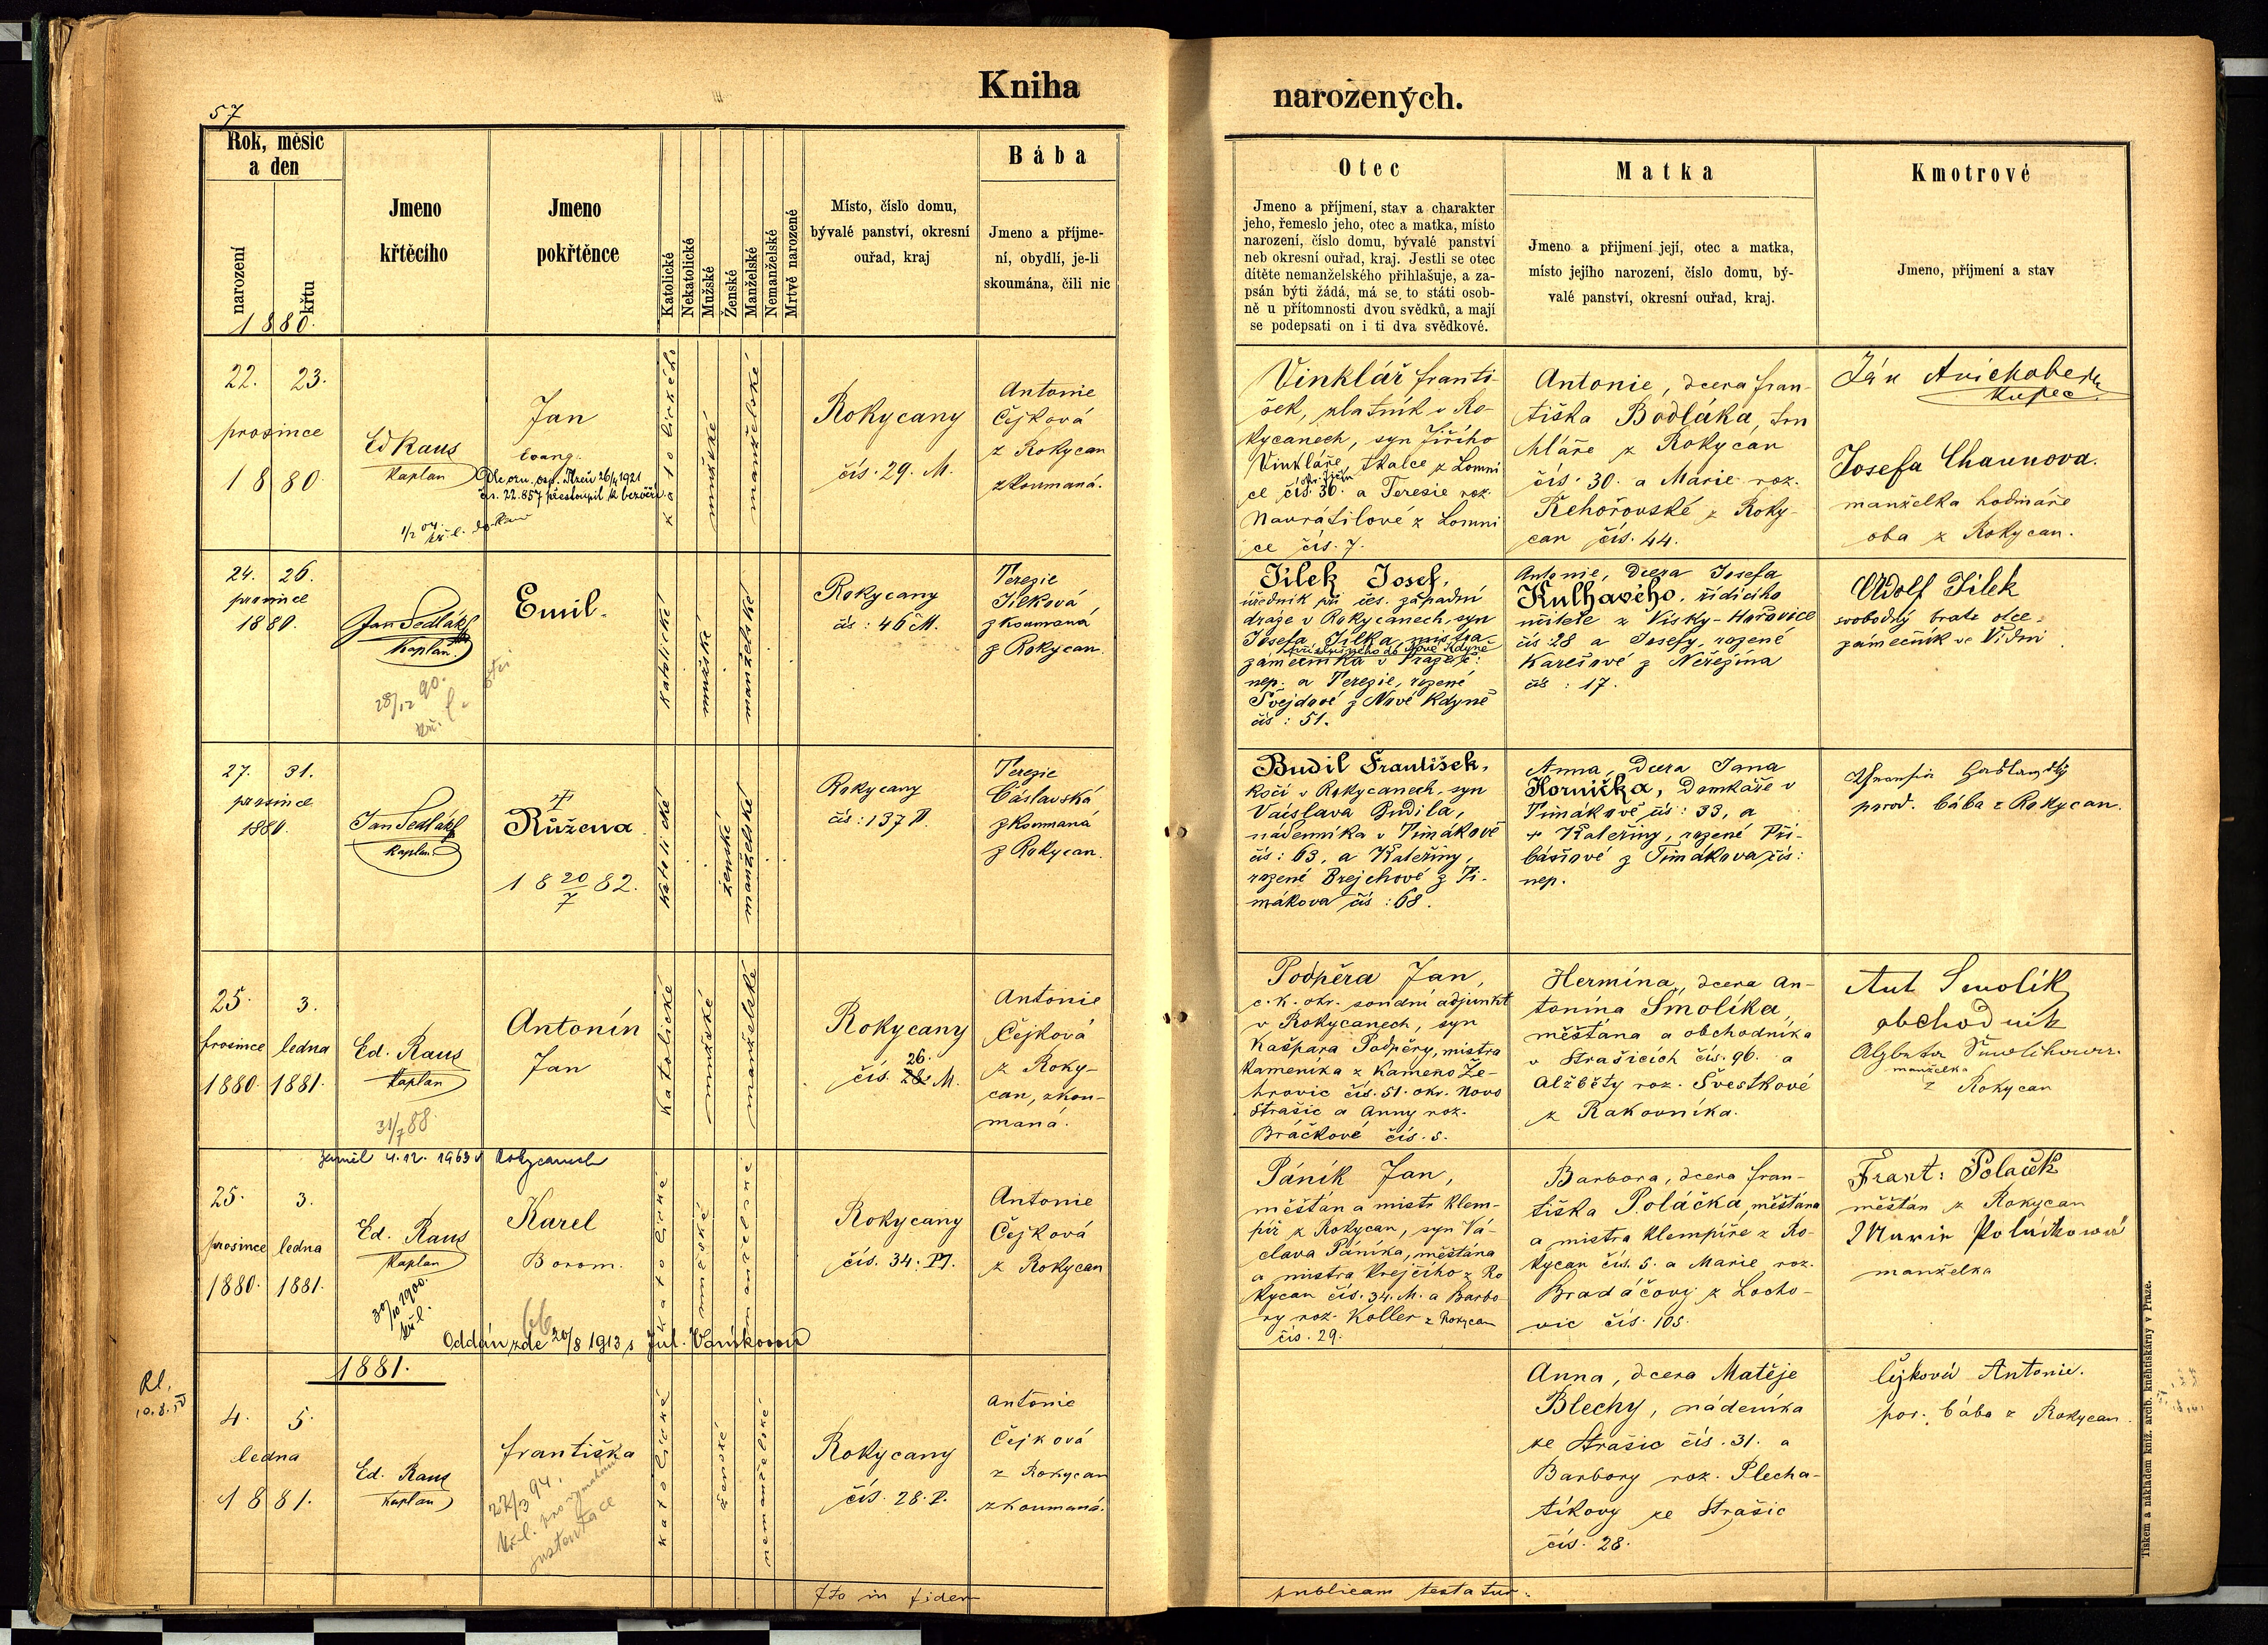 57
Kniha narozených.
Rok, měsíc a den
narození
křtu
1880.
Jmeno křtěcího
Jmeno pokřtěnce
Katolické
Nekatolické
Mužské
Ženské
Manželské
Nemanželské
Mrtvě narozené
Místo, číslo domu, bývalé panství, okresní ouřad, kraj
Bába
Jmeno a příjme-
ní, obydlí, je-li
skoumána, čili nic
Otec
Jmeno a příjmení, stav a charakter
jeho, řemeslo jeho, otec a matka, místo
narození, číslo domu, bývalé panství
neb okresní ouřad, kraj. Jestli se otec
dítěte nemanželského přihlašuje, a za-
psán býti žádá, má se to státi osob-
ně u přítomnosti dvou svědků, a mají
se podepsati on i ti dva svědkové.
Matka
Jmeno a přijmení její, otec a matka,
místo jejího narození, číslo domu, bý-
valé panství, okresní ouřad, kraj.
Kmotrové
Jmeno, příjmení a stav
22. 23.
prosince
1880.
Ed Raus
Kaplan
Jan
Evang.
Dle ozn. osp. Plzeň 26/4 1921
čís. 22.857 přestoupil k bezvěří
katolického
mužské
manželské
Rokycany
čís. 29. M.
Antonie
Čejková
z Rokycan
zkoumaná.
Vinklář Franti-
šek, zlatník v Ro-
kycanech, syn Jiřího
Vinkláře, tkalce z Lomni
ce čís. 36. a Teresie roz.
Navrátilové z Lomni
ce čís. 7.
Antonie, dcera Fran-
tiška Bodláka, tru
hláře z Rokycan
čís. 30. a Marie roz.
Řehořovské z Roky-
can čís. 44.
Ján
Kupec
Josefa Chaunova.
manželka hodináře
oba z Rokycan.
24. 26.
prosince
1880.
Jan Sedlák
Kaplan
28/12 90.
Emil.
katolické
mužské
manželské
Rokycany
čís: 46 M.
Terezie
Jílková
zkoumaná
z Rokycan.
Jílek Josef,
úředník při čes. západní
dráze v Rokycanech, syn
Josefa Jílka, mistra
příslušného do Nové Kdyně
zámečníka v Praze č:
nep. a Terezie, rozené
Švejdové z Nové Kdyně
čís: 51.
Antonie, dcera Josefa
Kulhavého, řídícího
učitele z Vísky-Hořovice
čís: 28 a Josefy, rozené
Karešové z Neřežína
čís: 17.
Adolf Jílek
svobodný bratr otce,
zámečník ve Vídni
27. 31.
prosince
1880.
Jan Sedlák
Kaplan
Růžena
18 20/7 82.
katolické
ženské
manželské
Rokycany
čís: 137 P.
Terezie
Čáslavská
zkoumaná
z Rokycan.
Budil František,
kočí v Rokycanech, syn
Václava Budila,
nádenníka v Timákově
čís: 63, a Kateřiny,
rozené Brejchové z Ti-
mákova čís: 68.
Anna, dcera Jana
Horníčka, domkáře v
Timákově čís: 33, a
+ Kateřiny, rozené Při-
báňové z Timákova čís:
nep.
porod. bába z Rokycan.
25. 3.
prosince ledna
1880. 1881.
Ed. Raus
Kaplan
31/7 88.
Antonín
Jan
katolické
mužské
manželské
Rokycany
26.
čís. 28. M.
Antonie
Čejková
z Roky-
can, zkou-
maná.
Podpěra Jan,
c. k. okr. soudní adjunkt
v Rokycanech, syn
Kašpara Podpěry, mistra
kameníka z Kameno Že-
hrovic čís. 51. okr. Novo
Strašic a Anny roz.
Bráčkové čís. 5.
Hermína, dcera An-
tonína Smolíka,
měšťana a obchodníka
v Strašicích čís. 96. a
Alžběty roz. Švestkové
z Rakovníka.
Ant Smolík
obchodník
Alzbeta Smolikova
manželka
z Rokycan
zemřel 4.12. 1963 v Rokycanech
25. 3.
prosince ledna
1880. 1881.
Ed. Raus
Kaplan
30/10 1900.
kř. l.
Karel
Borom.
66
Oddán zde 20/8 1913 s Jul. Vaníkovou
katolické
mužské
manželské
Rokycany
čís. 34. M.
Antonie
Čejková
z Rokycan
Páník Jan,
měšťan a mistr klem-
píř z Rokycan, syn Vá-
clava Páníka, měšťana
a mistra krejčího z Ro
kycan čís. 34. M. a Barbo-
ry roz. Koller z Rokycan
čís. 29.
Barbora, dcera Fran-
tiška Poláčka, měšťana
a mistra klempíře z Ro-
kycan čís. 5. a Marie roz.
Bradáčovy z Locho-
vic čís. 105.
Frant: Polaček
měšťan z Rokycan
Marie Poláčkowa
manželka
1881.
Rl.
10.8.
4. 5.
ledna
1881.
Ed. Raus
Kaplan
Františka
22/3 94.
kř. l.
katolické
ženské
nemanželské
Rokycany
čís. 28. P.
Antonie
Čejková
z Rokycan
zkoumaná.
Anna, dcera Matěje
Blechy, nádeníka
ze Strašic čís. 31. a
Barbory roz. Plecha-
tíkovy ze Strašic
čís. 28.
Čejková Antonie.
por. bába z Rokycan.
Ita in fidem publicam testatur.
Tiskem a nákladem kníž. arcib. knihtiskárny v Praze.